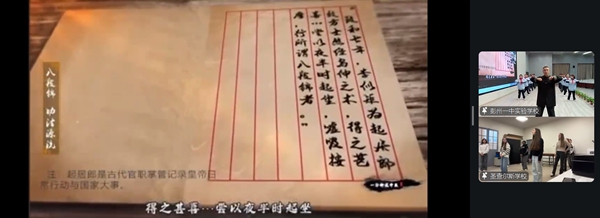 八段锦 功法源流
“政和七年，李似矩为起居郎
……
甚喜…尝以夜半时起坐，嘘吸按
摩，行所谓八段锦者。”
注：起居郎是古代官职掌管记录皇帝日
常行动与国家大事。
得之甚喜…尝以夜半时起坐
彭州一中实验学校
圣查尔斯学校